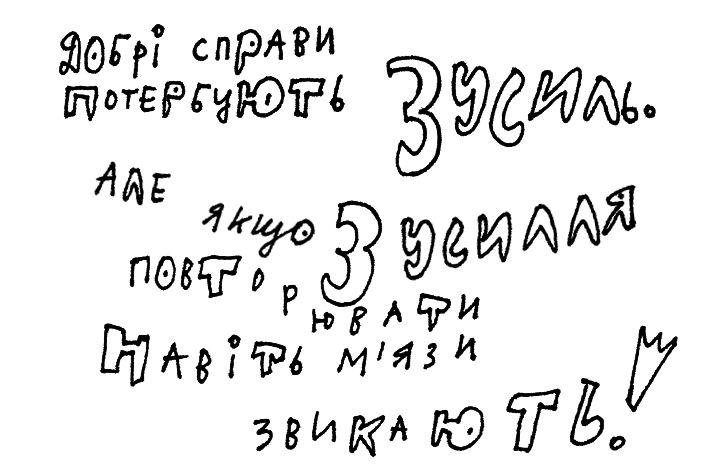 ДОБРІ СПРАВИ
ПОТЕРБУЮТЬ ЗУСИЛЬ.
АЛЕ ЯКЩО ЗУСИЛЛЯ
ПОВТОРЮВАТИ
НАВІТЬ М'ЯЗИ
ЗВИКАЮТЬ.